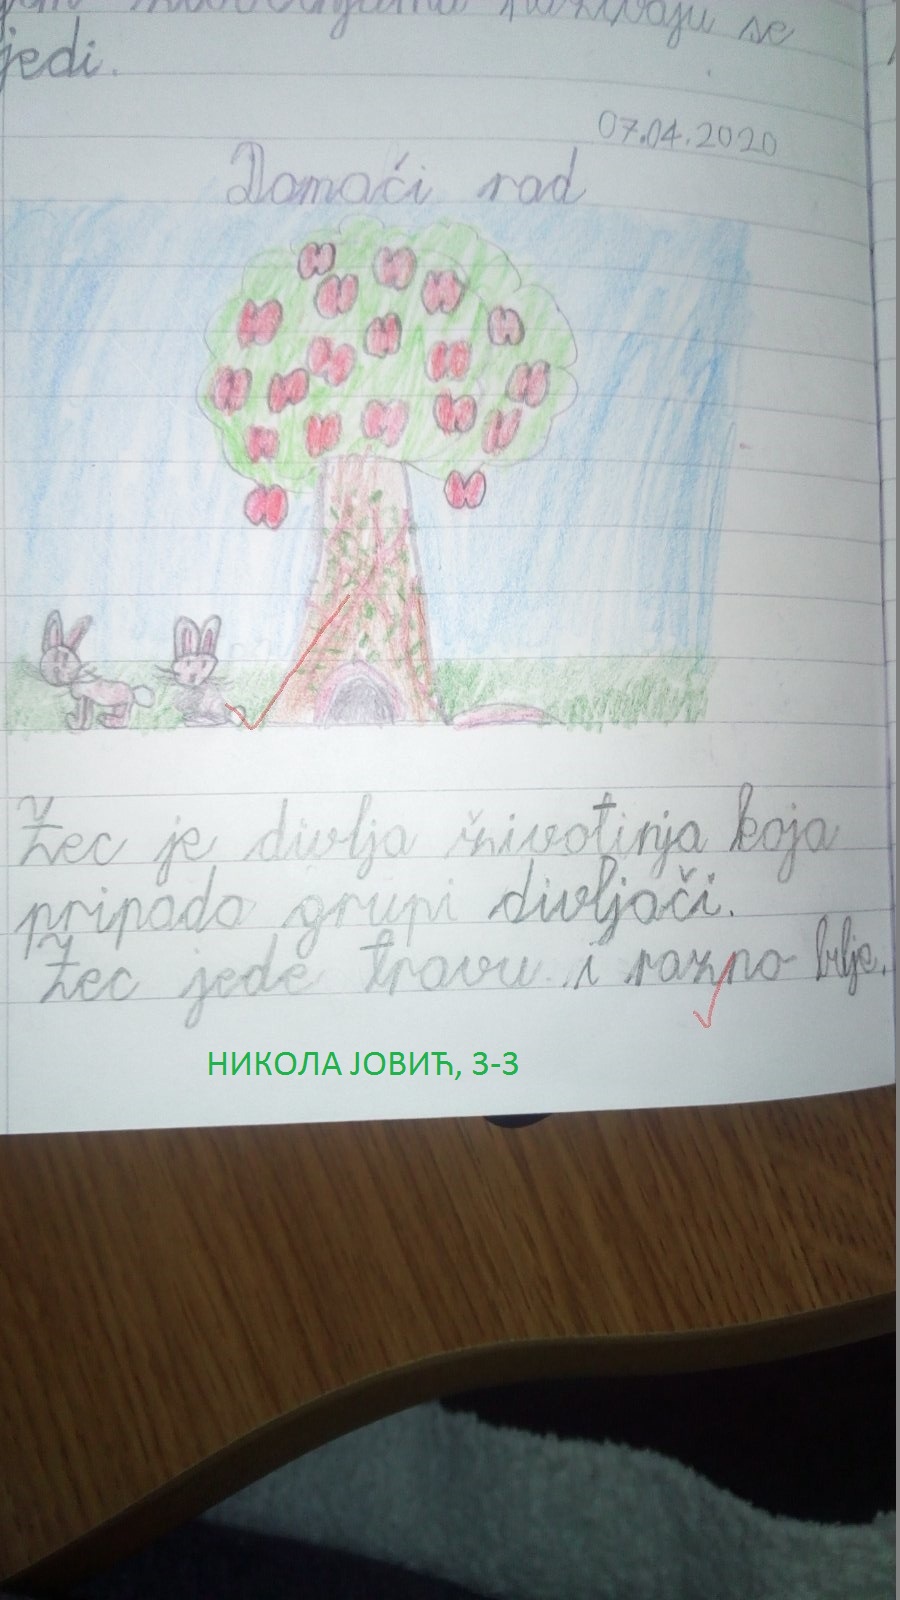 se
jedi.
07.04.2020
Domaći rad
Žec je divlja životinja koja
pripada grupi divljači.
Žec jede travu i razno bilje.
НИКОЛА ЈОВИЋ, 3-3